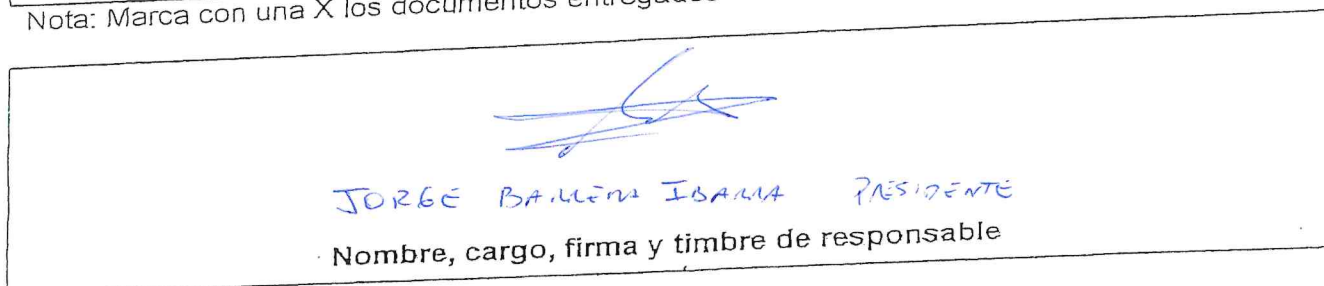 Nota: Marca con una X los documentos entregados
JORGE BARRERA IBARRA PRESIDENTE
Nombre, cargo, firma y timbre de responsable